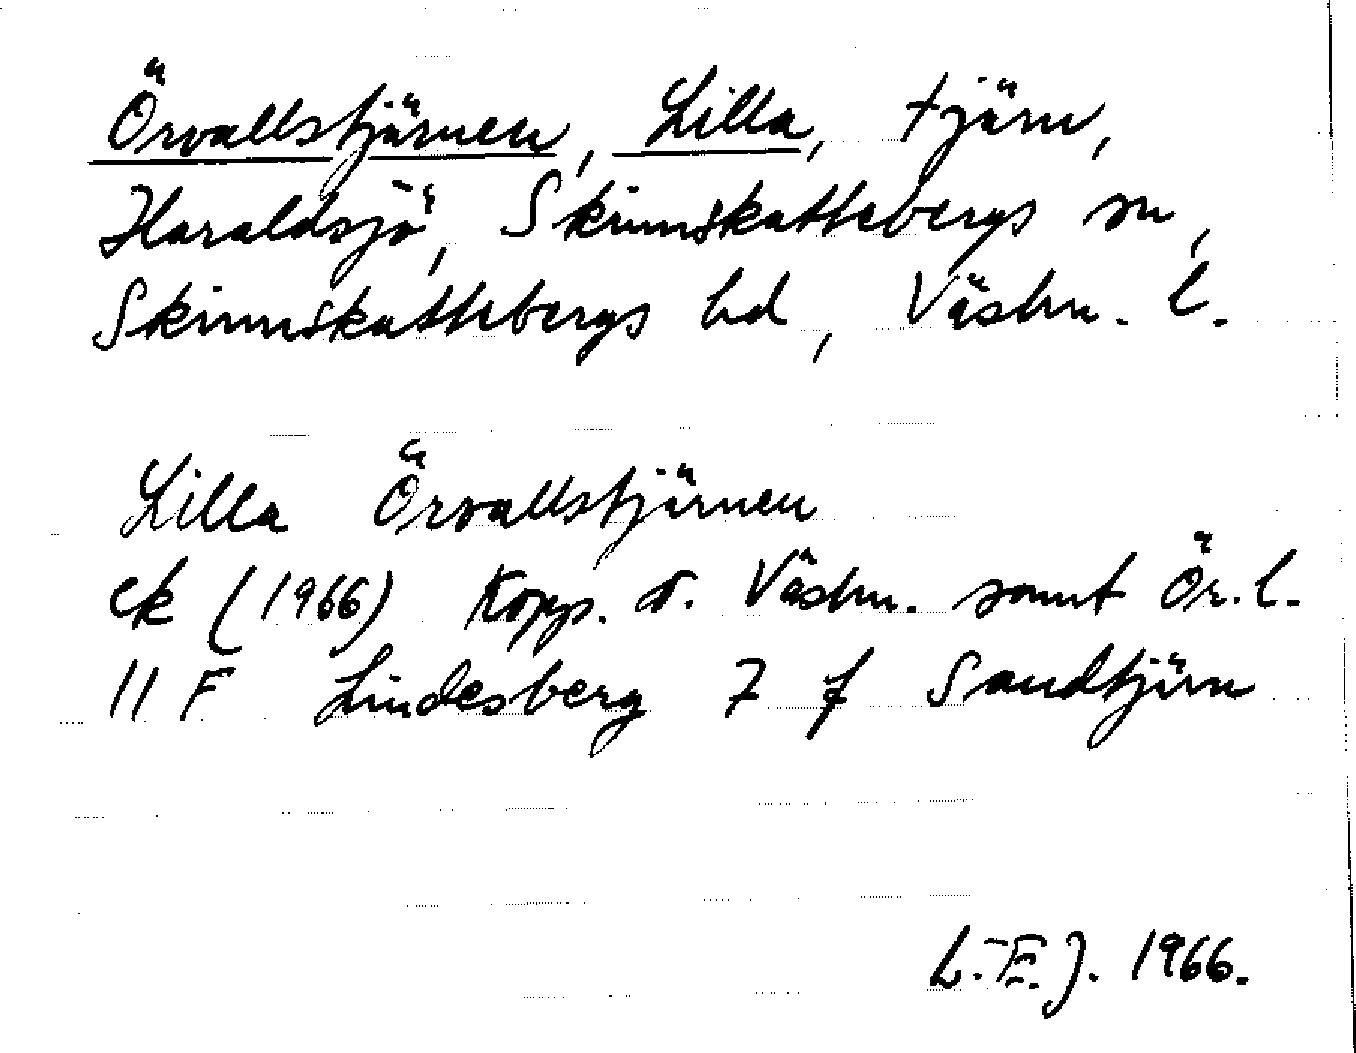 Örvallstjärnen, Lilla, tjärn,
Haraldsjö, Skinnskattebergs sn,
Skinnskattebergs hd, Västm. l.
Lilla Örvallstjärnen
ek (1966) Kopp. o. Västm. samt Ör. l.
11 F Lindesberg 7 f Sandtjärn
L.-E. J. 1966.